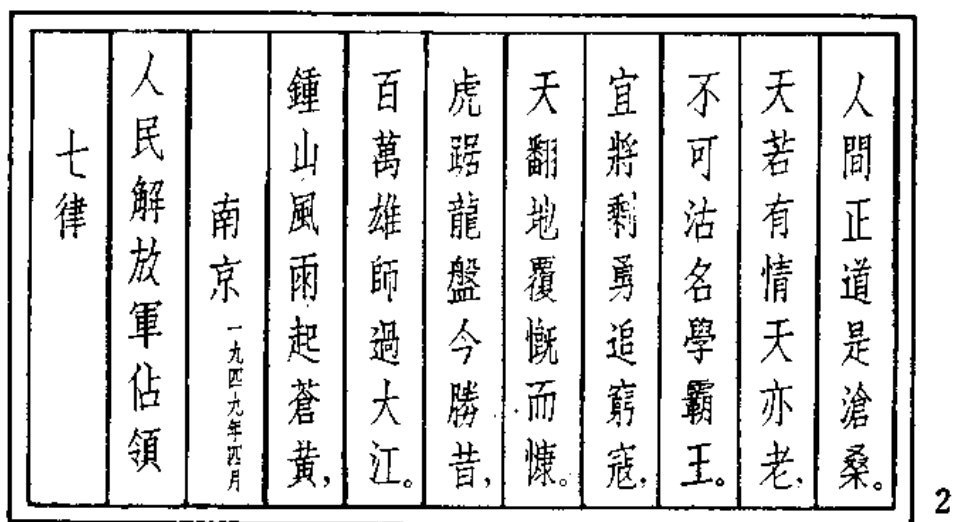 七律
人民解放軍佔領
南京 一九四九年四月
鍾山風雨起蒼黃,
百萬雄師過大江。
虎踞龍盤今勝昔,
天翻地覆慨而慷。
宜將剩勇追窮寇,
不可沽名學霸王。
天若有情天亦老,
人間正道是滄桑。
2